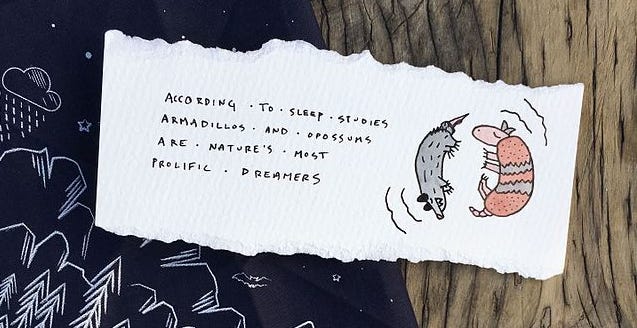 ACCORDING · TO · SLEEP · STUDIES
ARMADILLOS · AND · OPOSSUMS
ARE · NATURE'S · MOST
PROLIFIC · DREAMERS